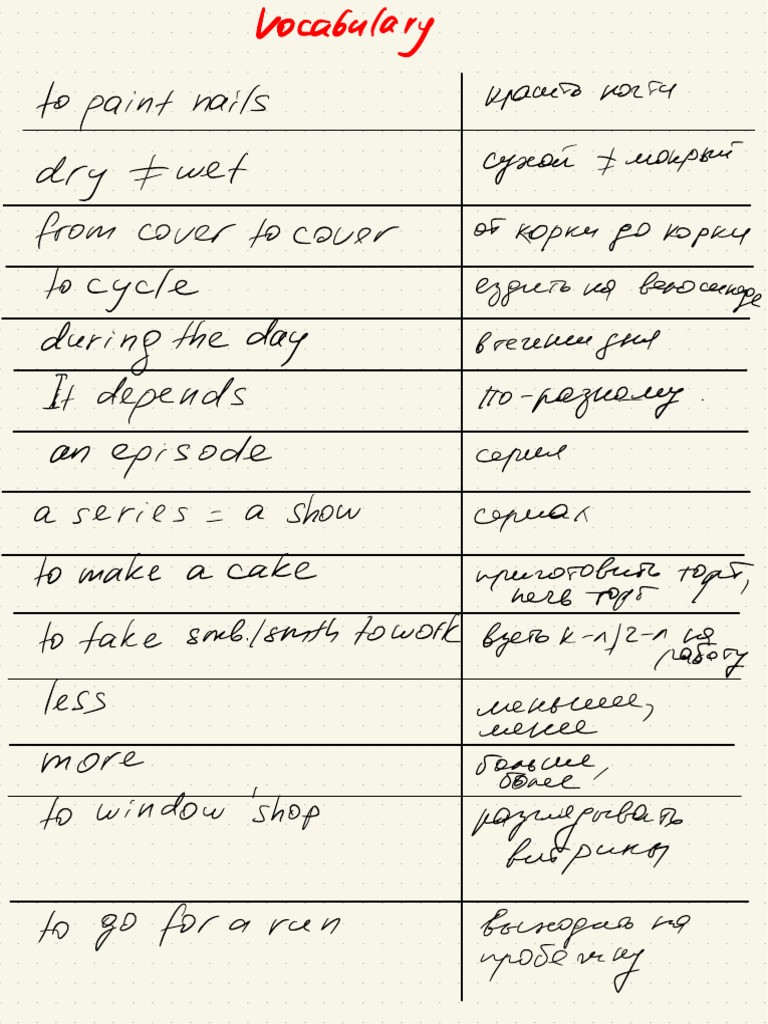 Vocabulary
to paint nails красить ногти
dry ≠ wet сухой ≠ мокрый
from cover to cover от корки до корки
to cycle ездить на велосипеде
during the day в течении дня
It depends по-разному
an episode серия
a series = a show сериал
to make a cake приготовить торт,
печь торт
to take smb./smth to work взять к-л/ч-л на
работу
less меньше,
менее
more больше,
более
to window 'shop разглядывать
витрины
to go for a run выходить на
пробежку